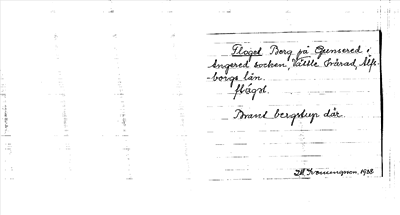 Floget Berg på Gunnered i
Angered socken, Vättle härad, Älfs-
borgs län.
flåget.
Brant bergstup där.
1928